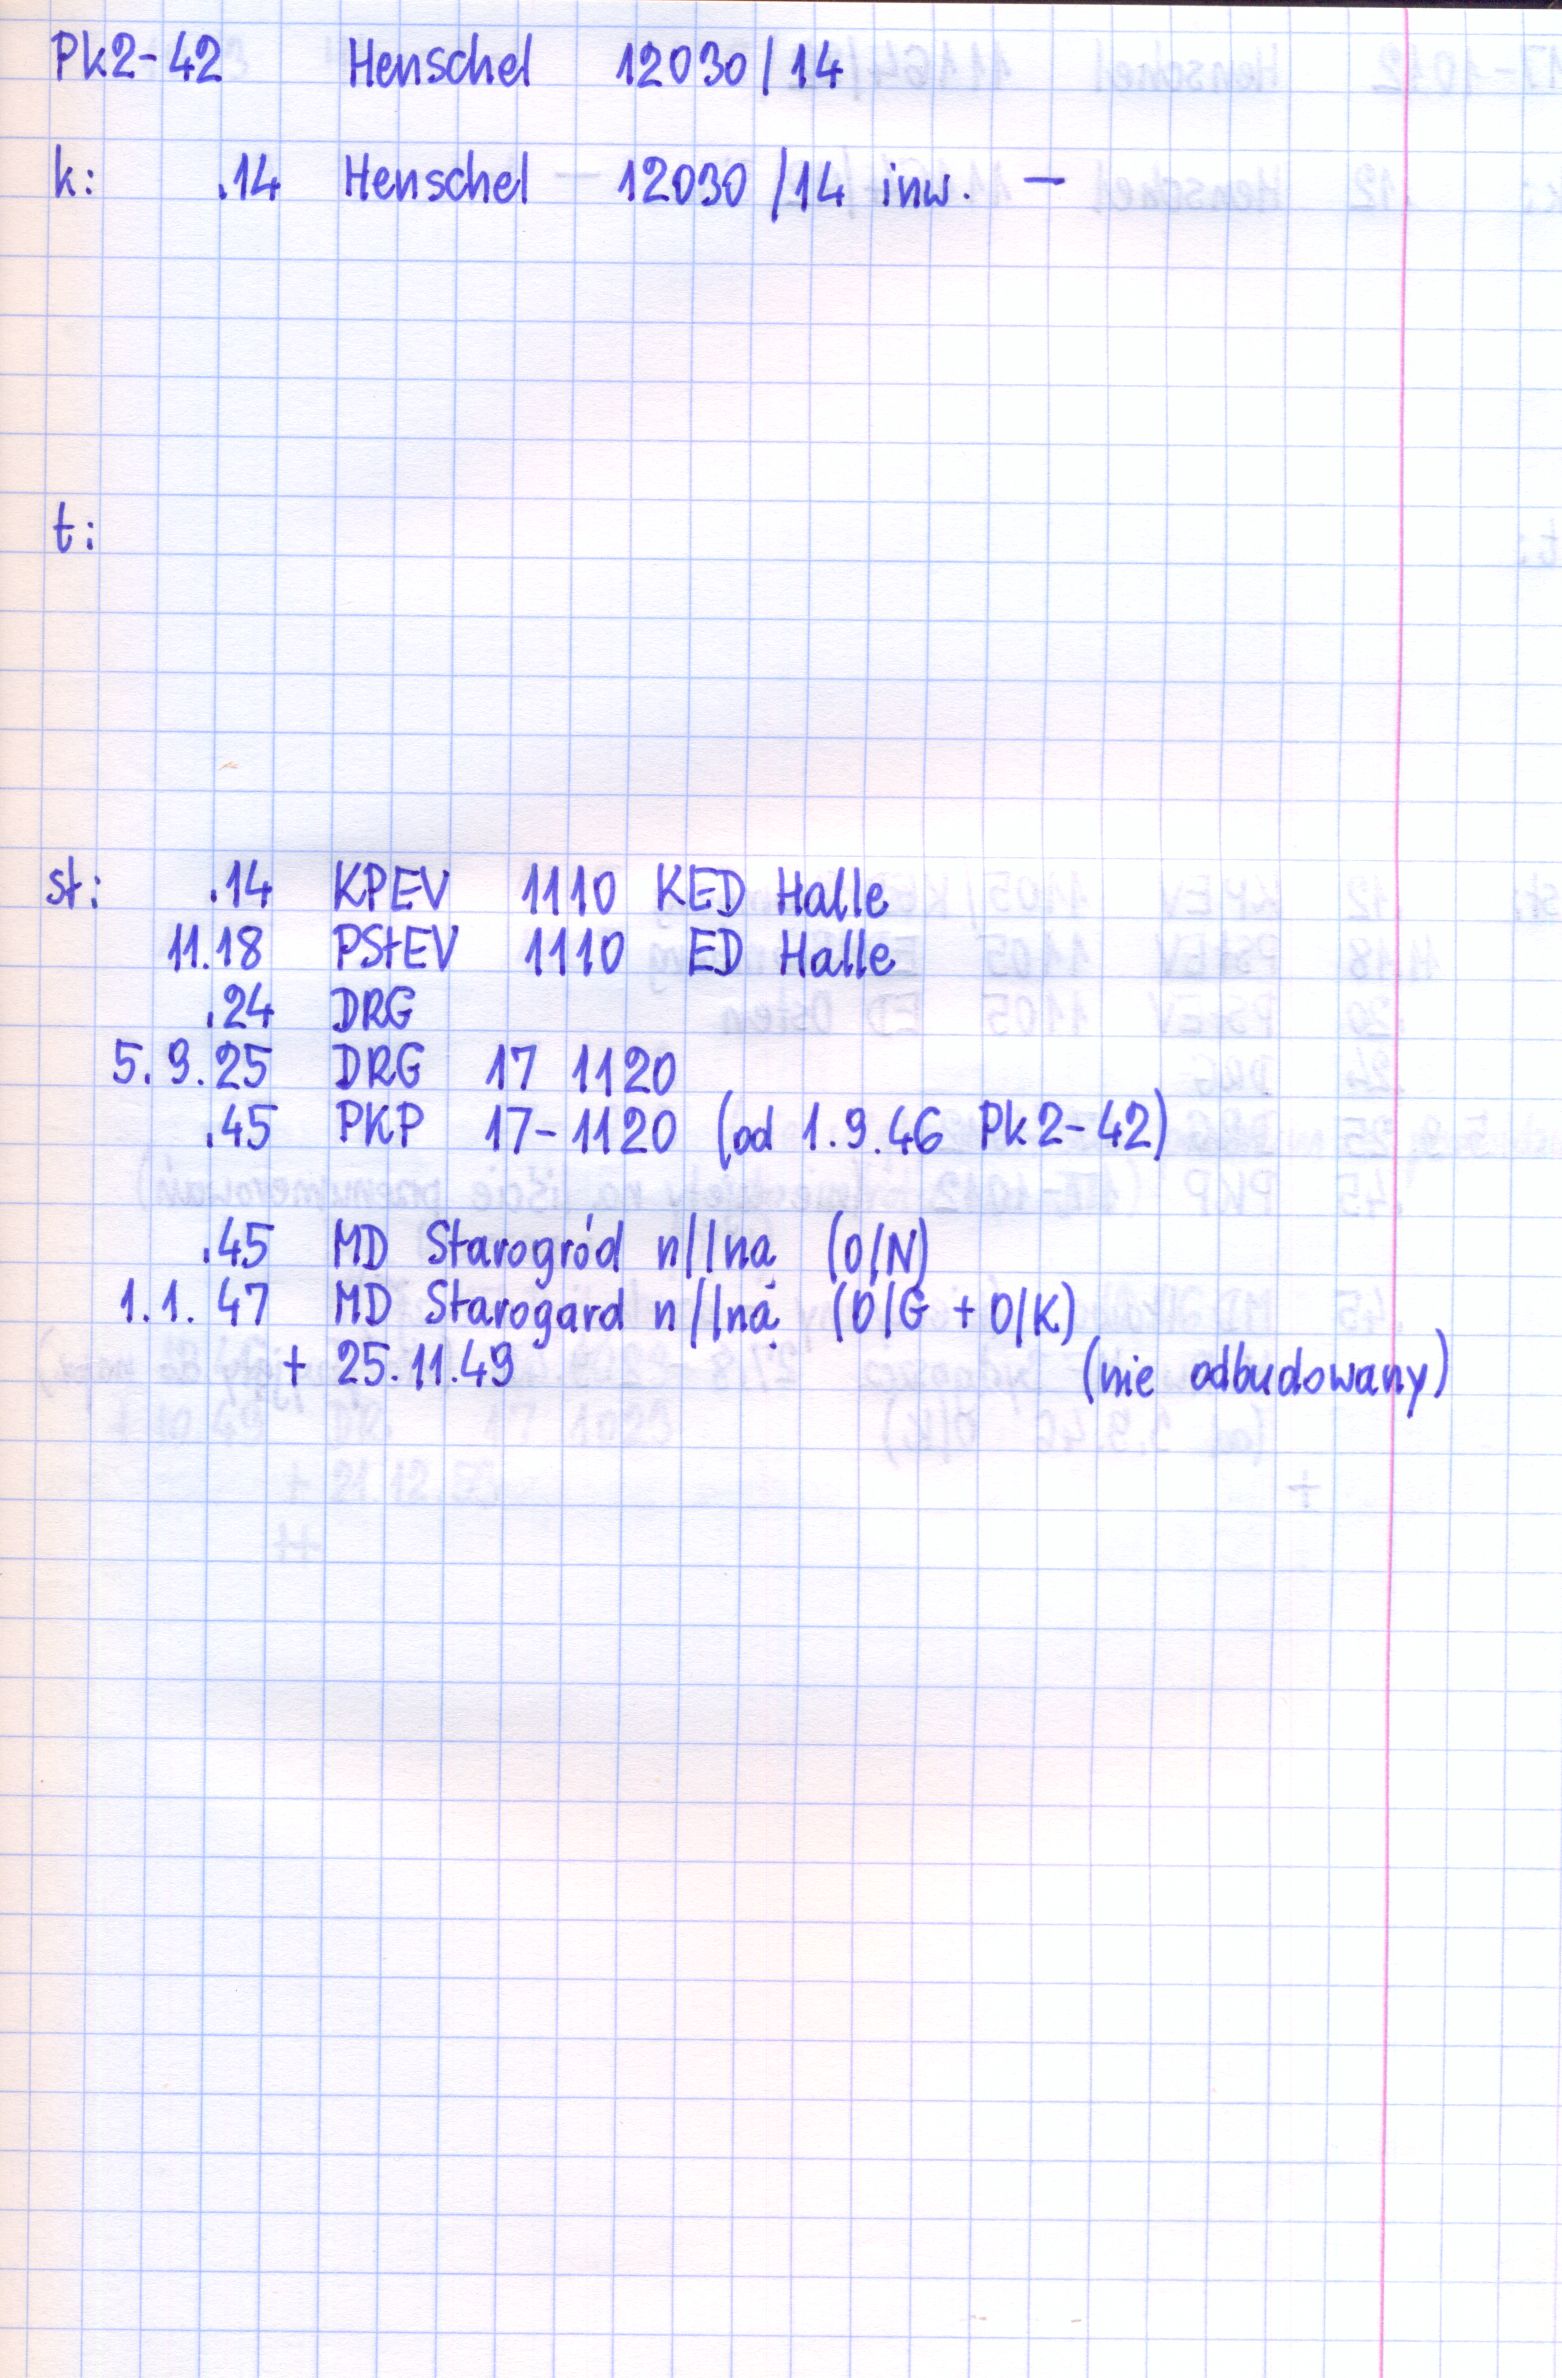 Pk2-42 Henschel 12030/14
k: .14 Henschel - 12030/14 inw. -
t:
st: .14 KPEV 1110 KED Halle
11.18 PStEV 1110 ED Halle
.24 DRG
5.9.25 DRG 17 1120
.45 PKP 17-1120 (od 1.9.46 Pk2-42)
.45 MD Starogród n/Iną (O/N)
1.1.47 MD Starogard n/Iną (O/G + O/K)
+ 25.11.49 (nie odbudowany)